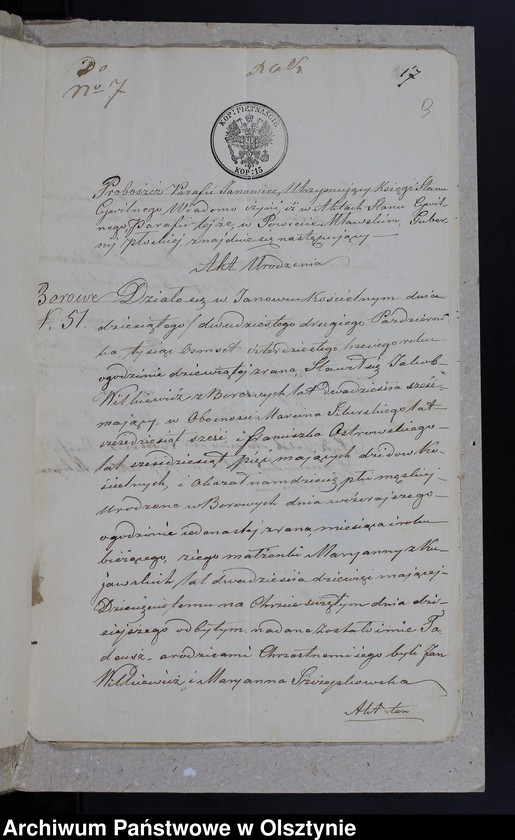 Do
No 7
17
KOP: PIETNASCIE
KOP: 15
Proboszcz Parafii Janowiec, Utrzymujący Księgi Stanu
Cywilnego Wiadomo czyni iż w Aktach Stanu Cywil-
nego Parafii tejże, w Powiecie Mławskim, Guber-
nij płockiej znajduie się następujący
Akt Urodzenia
Borowe
N. 51.
Działo się w Janowcu Kościelnym dnia
dziesiątego / dwudziestego drugiego Październi-
ka tysiąc Osmset trzeciego roku
ogodzinie dziewiątej zrana, Stawił się Jakob
Wilkiewicz z Borowych lat dwadzieścia sześć
mający, w Obecności Marcina lat
sześćdziesiąt sześć, i Franciszka Ostrowskiego
lat sześćdziesiąt pięć mających dziadow Ko-
ścielnych, i Okazał nam dziecię płci męzkiej
Urodzone w Borowych dnia wczorajszego
ogodzinie iedenastej zrana, miesiąca i roku
bieżącego, z iego małżonki Maryanny z Ku-
jawskich lat dwadzieścia dziewięć mającej
Dziecięciu temu na Chrzcie świętym dnia dzi-
siejszego odbytym nadane zostało imie Ta-
deusz, a rodzicami Chrzestnemi iego byli Jan
Wilkiewicz i Maryanna
Akt ten
Archiwum Państwowe w Olsztynie